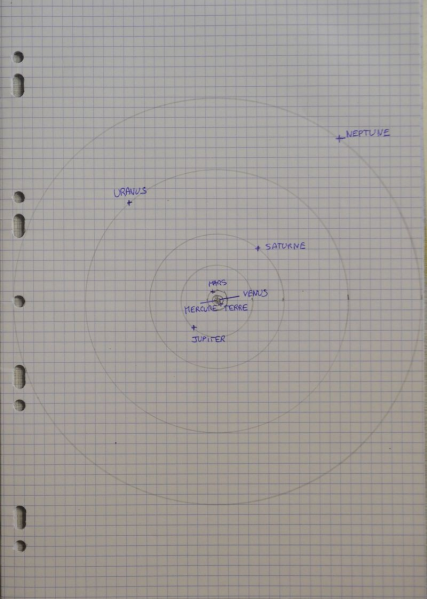 NEPTUNE
URANUS
SATURNE
MARS
VÉNUS
MERCURE TERRE
JUPITER